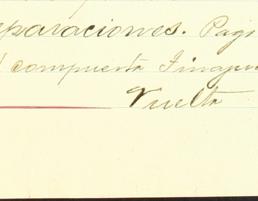 eparaciones. Pags
compuerta Tinajue
Vuelta